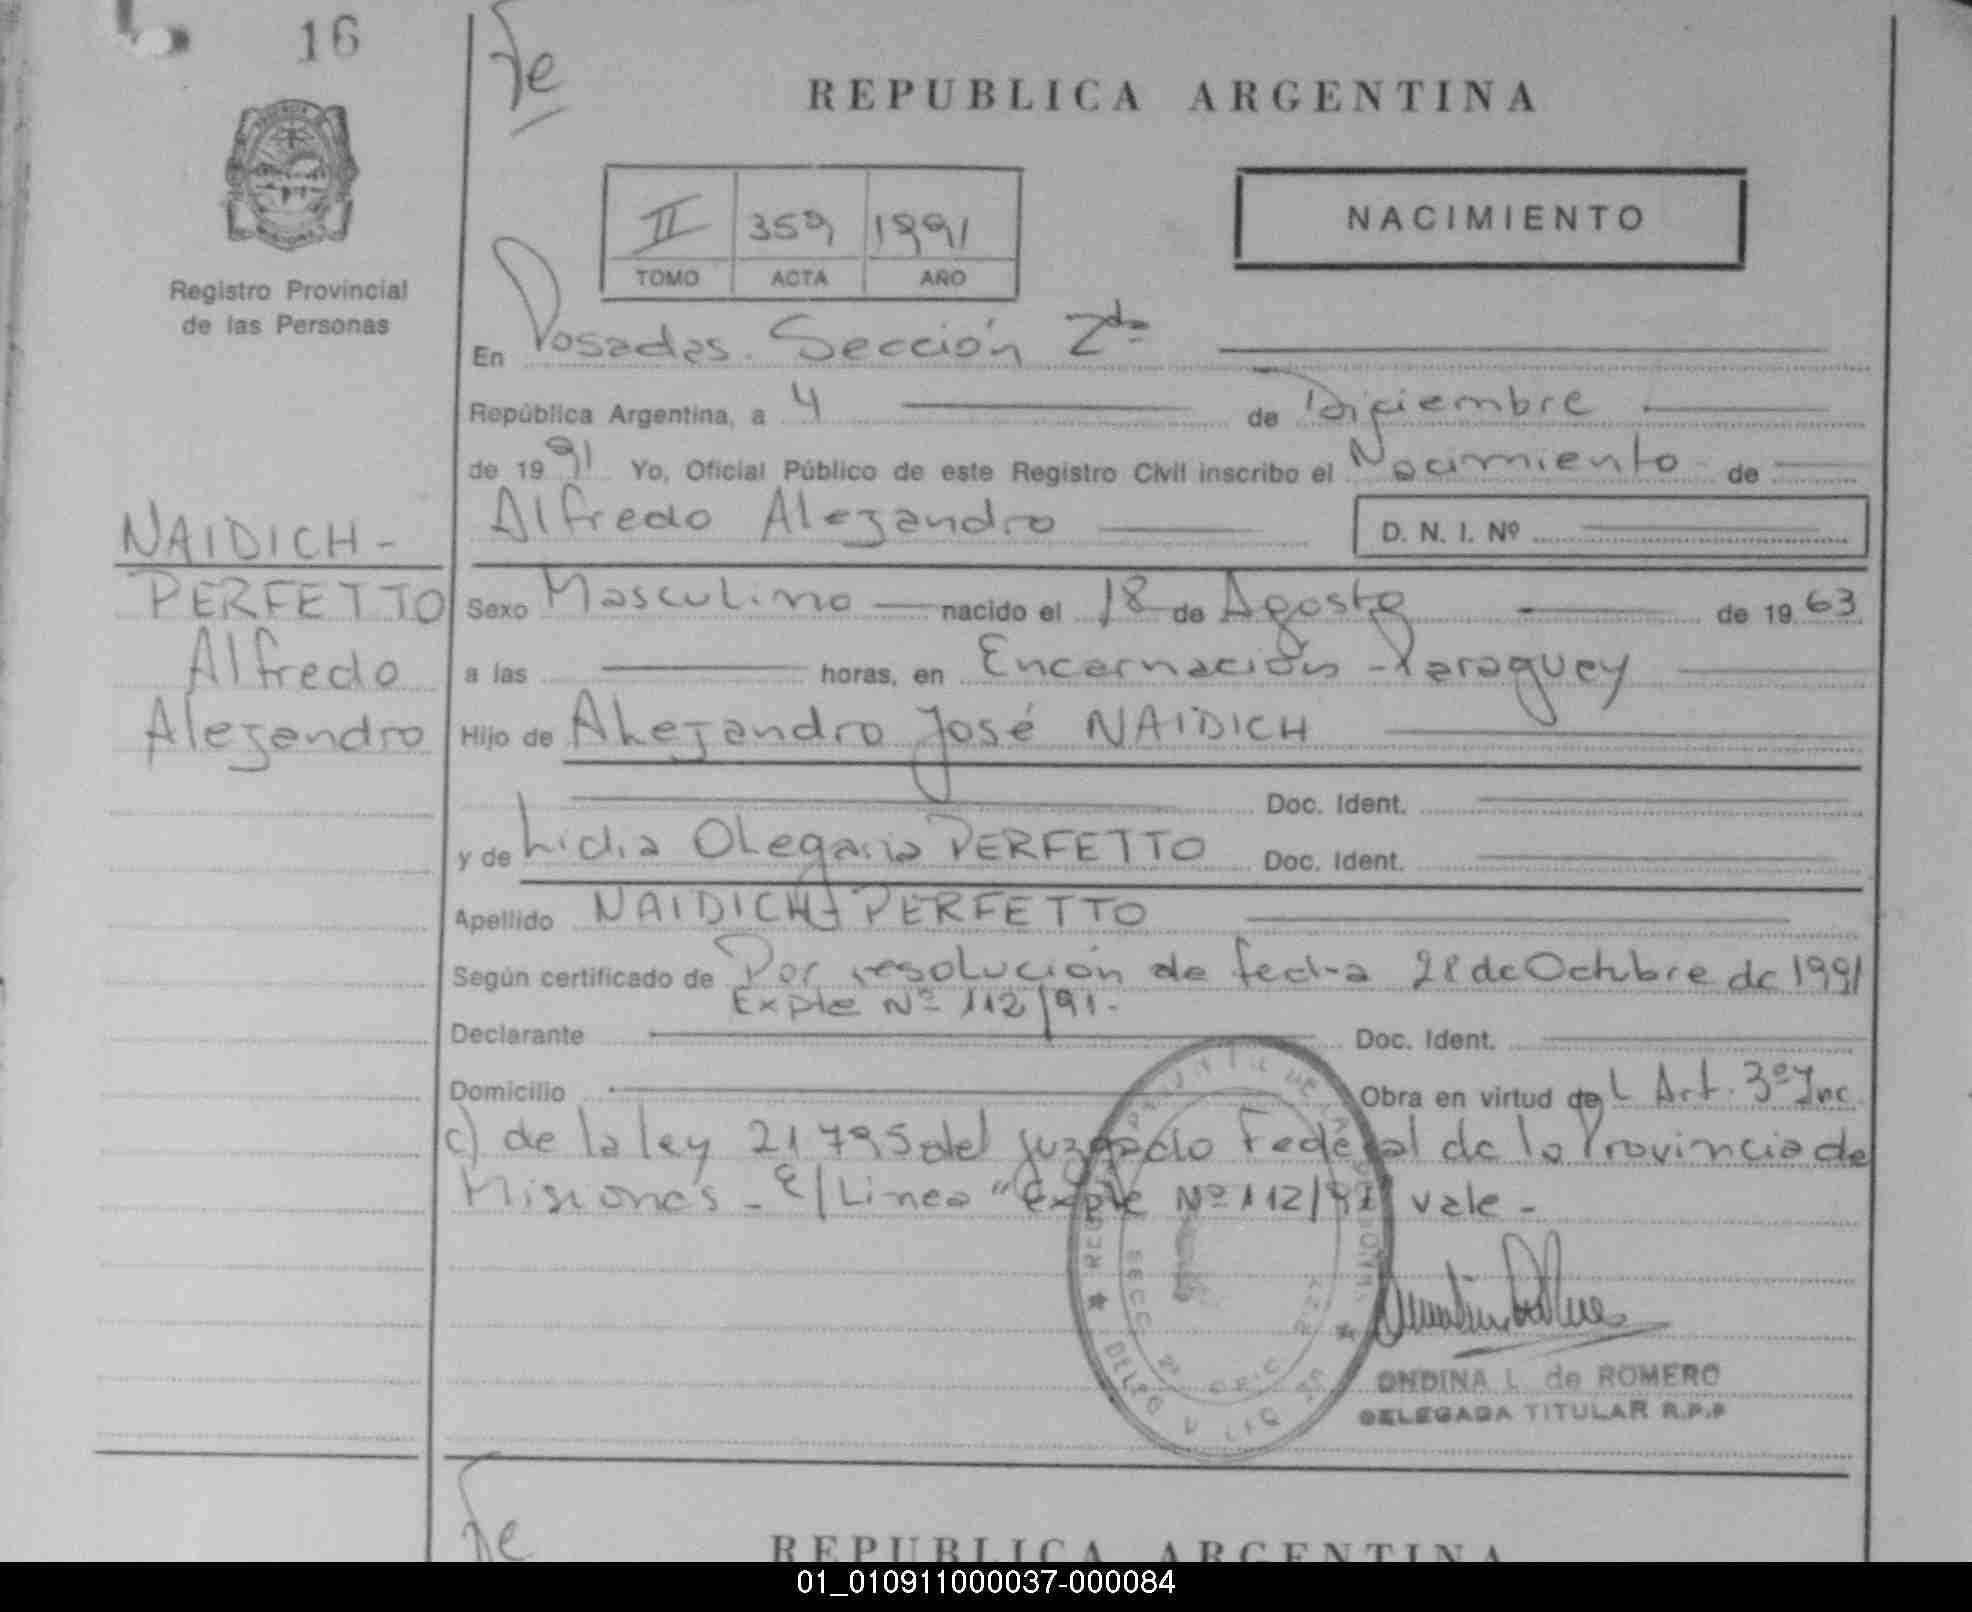 16
Fe
REPUBLICA ARGENTINA
Registro Provincial
de las Personas
II 359 1991
TOMO ACTA AÑO
NACIMIENTO
En Posadas. Sección 2da
República Argentina, a 4 de Diciembre
de 1991 Yo, Oficial Público de este Registro Civil inscribo el Nacimiento de
Alfredo Alejandro D. N. I. Nº
NAIDICH-
PERFETTO
Alfredo
Alejandro
Sexo Masculino nacido el 18 de Agosto de 1963
a las horas, en Encarnación - Paraguay
Hijo de Alejandro José NAIDICH
Doc. Ident.
y de Lidia Olegaria PERFETTO Doc. Ident.
Apellido NAIDICH-PERFETTO
Según certificado de Por resolución de fecha 28 de Octubre de 1991
Expte Nº 112/91.
Declarante Doc. Ident.
Domicilio Obra en virtud del Art. 3º Inc.
c) de la ley 21795 del juzgado Federal de la Provincia de
Misiones - E/Linea "Expte Nº 112/91" vale -
ONDINA L. de ROMERO
DELEGADA TITULAR R.P.P
Fe
REPUBLICA ARGENTINA
01_010911000037-000084